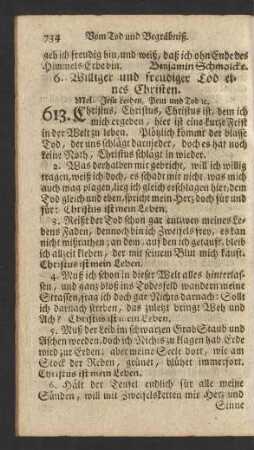 734 Vom Tod und Begräbniß.
geh ich freudig hin, und weiß, daß ich ohn Ende des
Himmels Erbe bin. Benjamin Schmolcke.
6. Williger und freudiger Tod ei-
nes Christen.
Mel. Jesu Leiden, Pein und Tod ꝛc.
613. Christus, Christus, Christus ist, dem ich
mich ergeben, hier ist eine kurze Frist
in der Welt zu leben. Plötzlich kommt der blasse
Tod, der uns schlägt darnieder, doch es hat noch
keine Noth, Christus schlägt in wieder.
2. Was derhalben mir gebricht, will ich willig
tragen, weiß ich doch, es schadt mir nicht, was mich
auch mag plagen, lieg ich gleich erschlagen hier, dem
Tod gleich und eben, spricht mein Herz doch für und
für: Christus ist mein Leben.
3. Reißt der Tod schon gar entzwey meines Le-
bens Faden, dennoch bin ich Zweifels frey, es kan
nicht mißrathen; an dem, auf den ich getauft, bleib
ich allzeit kleben, der mit seinem Blut mich kauft.
Christus ist mein Leben.
4. Muß ich schon in dieser Welt alles hinterlas-
sen, und ganz bloß ins Todesfeld wandern meine
Strassen, frag ich doch gar Nichts darnach: Sollt
ich darnach streben, das zuletzt bringt Weh und
Ach? Christus ist mein Leben.
5. Muß der Leib im schwarzen Grab Staub und
Aschen werden, doch ich Nichts zu klagen hab Erde
wird zur Erden; aber meine Seele dort, wie am
Stock der Reben, grünet, blühet immerfort.
Christus ist mein Leben.
6. Hält der Teufel endlich für alle meine
Sünden, will mit Zweifelsketten mir Herz und
Sinne